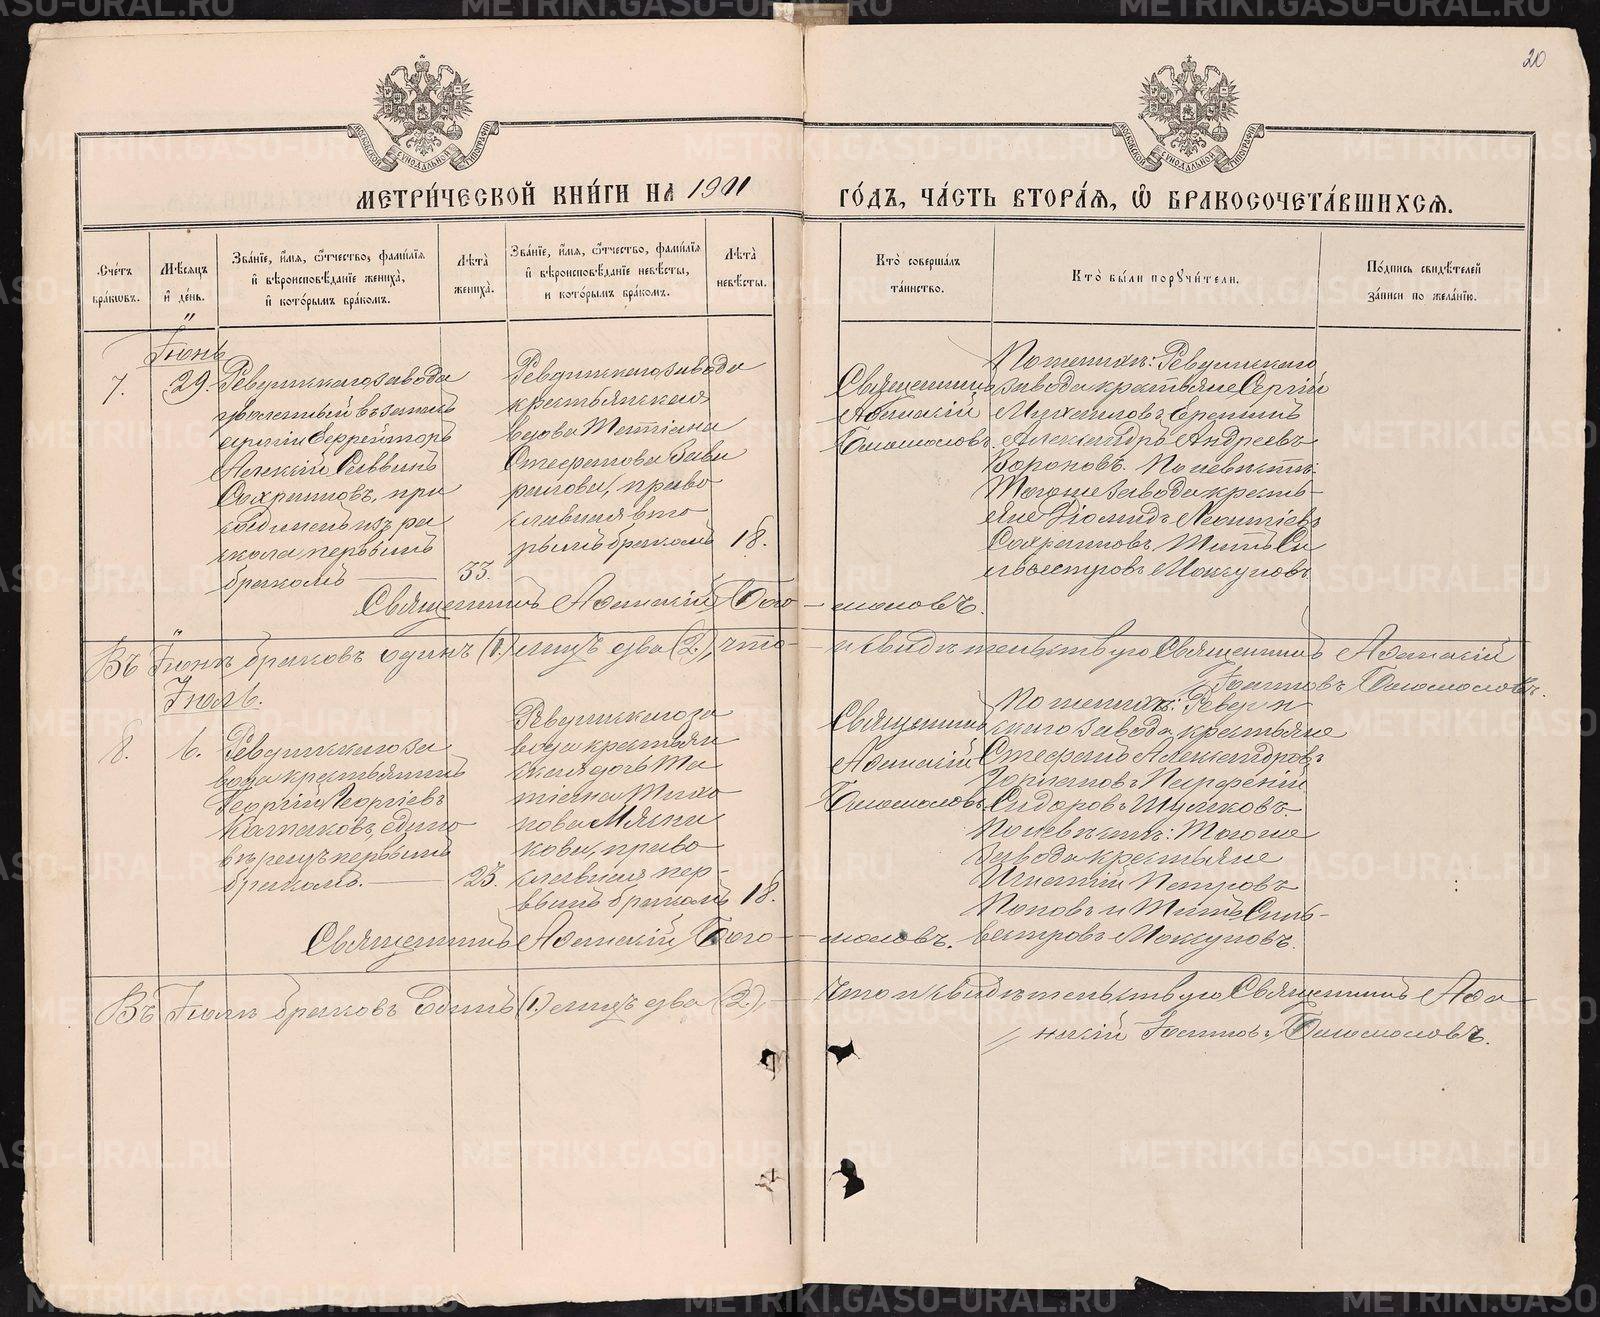 20
МЕТРИ́ЧЕСКОЙ КНИ́ГИ НА 1911 ГО́ДЪ, ЧА́СТЬ ВТОРА́Я, Ѡ БРАКОСОЧЕТА́ВШИХСЯ.
Сче́тъ бра́ковъ.
Мѣ́сяцъ и де́нь.
Зва́нїе, и́мя, ѻ́тчество, фами́лїя и вѣроисповѣ́данїе жениха̀, и кото́рымъ бра́комъ.
Лѣ́та жениха̀.
Зва́нїе, и́мя, ѻ́тчество, фами́лїя и вѣроисповѣ́данїе невѣ́сты, и кото́рымъ бра́комъ.
Лѣ́та невѣ́сты.
Кто̀ соверша́лъ та́инство.
Кто̀ бы́ли поручи́тели.
По́дпись свидѣ́телей за́писи по жела́нїю.
Іюнь
7.
29.
Ревдинскаго завода
уволенный въ запасъ
арміи Ефрейторъ
Алексій Саввинъ
Сохранновъ, при
соединенъ изъ ра
скола первымъ
бракомъ
33.
Ревдинскаго завода
крестьянская
вдова Татіана
Стефанова
право
славная вто
рымъ бракомъ
18.
Священникъ
Афанасій
Богомоловъ.
По женихѣ: Ревдинскаго
завода крестьяне Сергій
Александръ Андреевъ
Вороновъ. По невѣстѣ:
Тогоже завода кресть-
яне Діомидъ Леонтіевъ
Сохранновъ Титъ Си
львестровъ Мокшуновъ
Священникъ Афанасій Бого-моловъ.
Въ Іюнѣ браковъ одинъ (1.) лицъ два (2.), что-и свидѣтельствую Священникъ Афанасій
Іоанновъ Богомоловъ.
Іюль.
8.
6.
Ревдинскаго за
вода крестьянинъ
Георгій Георгіевъ
Колпаковъ, едино
вѣрецъ первымъ
бракомъ.
25.
Ревдинскаго за
вода крестьян
ская дочь Та
тіана Тихо
нова Мягки
хова, право
славная пер-
вымъ бракомъ
18.
Священникъ
Афанасій
Богомоловъ.
По женихѣ: Ревдин
скаго завода, крестьяне
Стефанъ Александровъ
Парфеній
Сидоровъ Шумковъ.
По невѣстѣ: Тогоже
завода крестьяне
Игнатій Петровъ
Поповъ и Титъ Силь-
вестровъ Мокшуновъ.
Священникъ Афанасій Бого-моловъ.
Въ Іюлѣ браковъ Единъ (1.) лицъ два (2.), - что и свидѣтельствую Священникъ Афа
насій Іоанновъ Богомоловъ.
METRIKI.GASO-URAL.RU